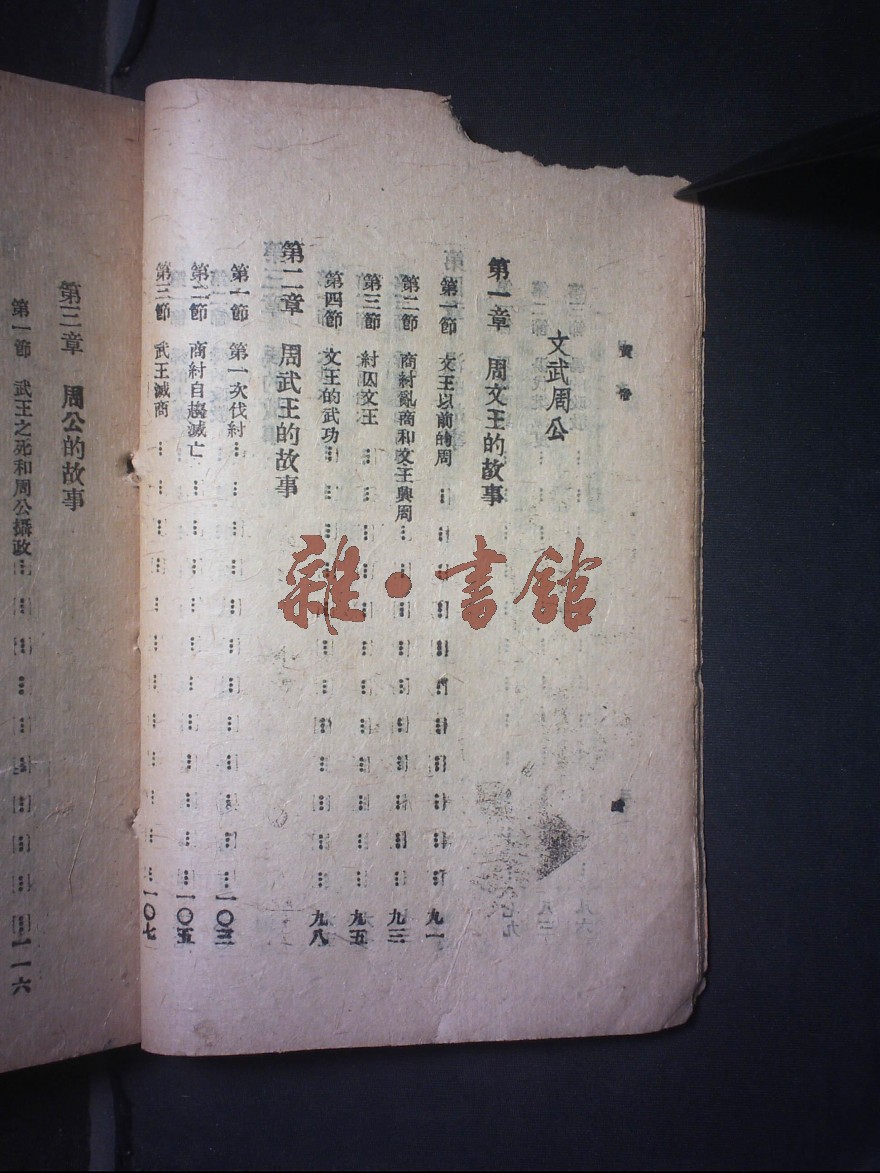 文武周公
第一章　周文王的故事
第一節　文王以前的周……九一
第二節　商紂亂商和文王興周……九三
第三節　紂囚文王……九五
第四節　文王的武功……九八
第二章　周武王的故事
第一節　第一次伐紂……一〇三
第二節　商紂自趨滅亡……一〇五
第三節　武王滅商……一〇七
第三章　周公的故事
第一節　武王之死和周公攝政……一一六
雜·書館